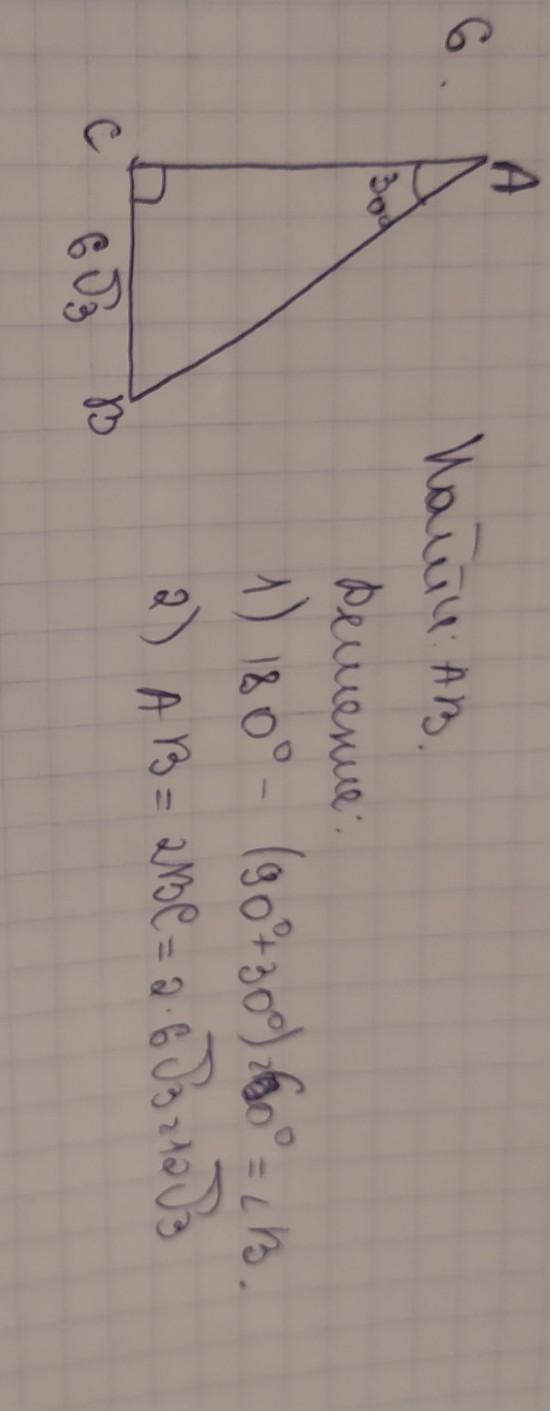 6.
A
30°
C
6√3
B
Найти: AB.
Решение:
1) 180° - (90°+30°)=60° = ∠B.
2) AB = 2BC = 2·6√3=12√3